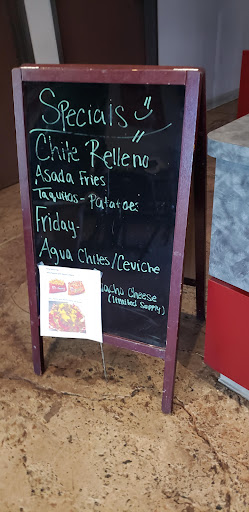 Specials
Chile Relleno
Asada Fries
Taquitos - Patatoe:
Friday-
Agua Chiles/Ceviche
Nacho Cheese
(limited Supply)